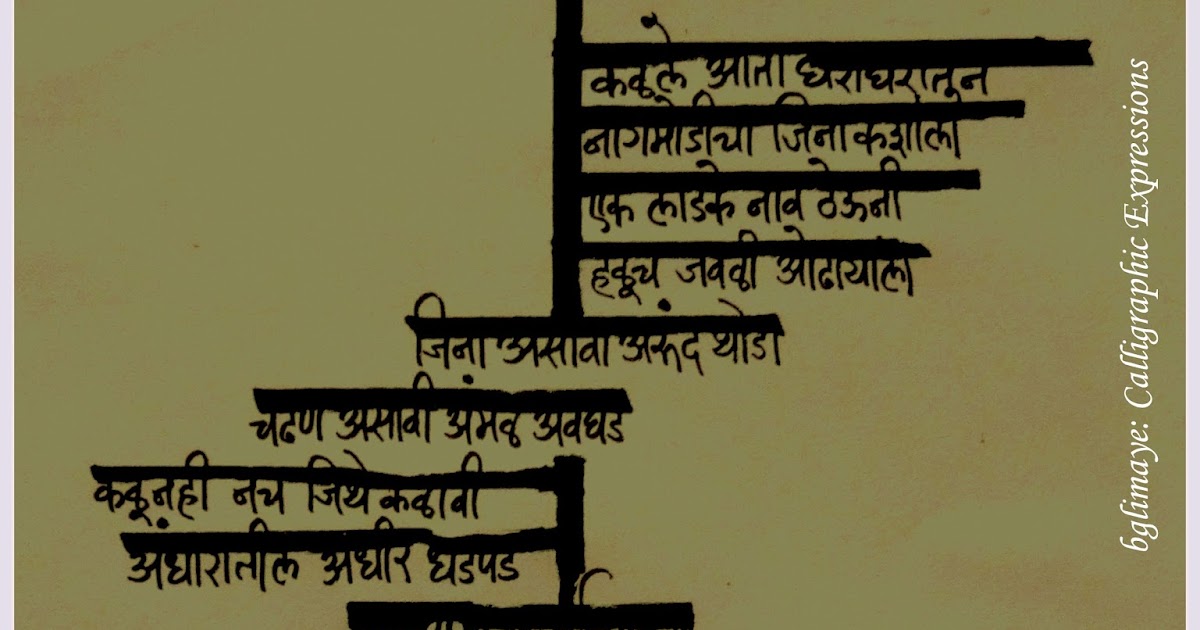 कळले आता घराघरातुन
नागमोडीचा जिना कशाला
एक लाडके नाव ठेऊनी
हळूच जवळी ओढायाला
जिना असावा अरूंद थोडा
चढण असावी अंमळ अवघड
कळूनही नच जिथे कळावी
अंधारातील अधीर धडपड
bglimaye: Calligraphic Expressions